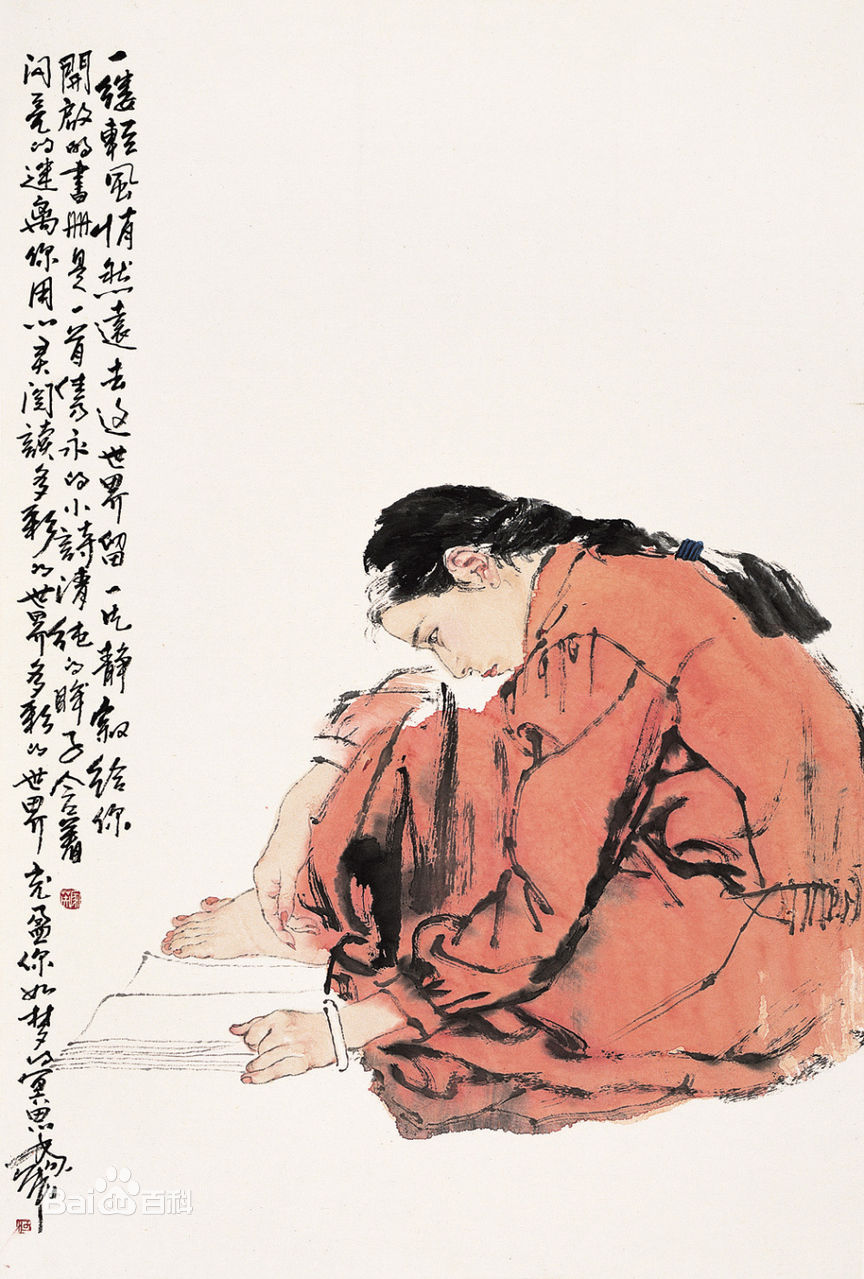 一缕輕風悄然遠去这世界留一片静寂给你
開啟的書册是一首隽永的小詩清純的眸子含着
闪亮的迷离你用心灵阅讀多彩的世界多彩的世界充盈你如梦的冥思
Baidu百科